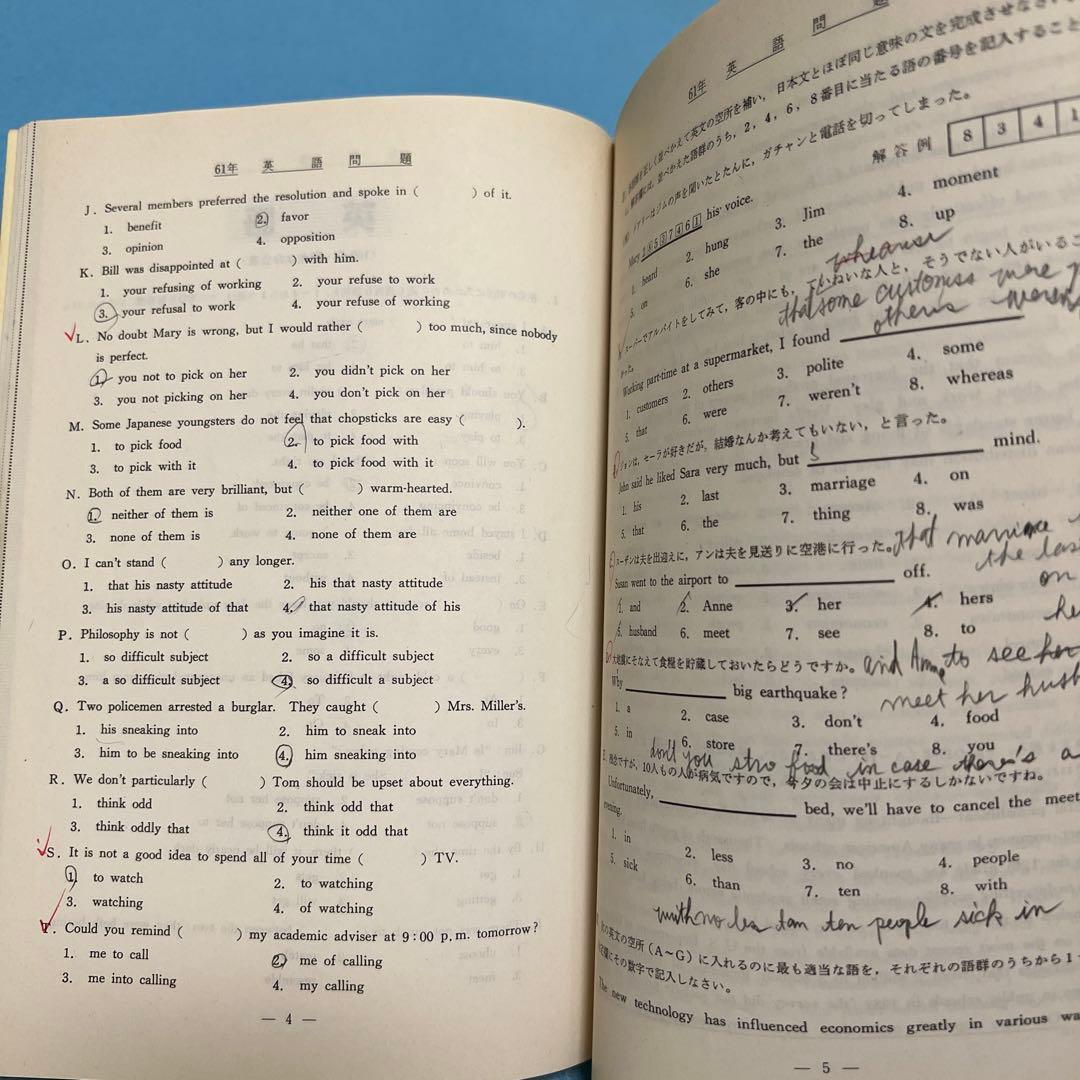 61年 英 語 問 題
J. Several members preferred the resolution and spoke in ( ) of it.
1. benefit 2. favor
3. opinion 4. opposition
K. Bill was disappointed at ( ) with him.
1. your refusing of working 2. your refuse to work
3. your refusal to work 4. your refuse of working
L. No doubt Mary is wrong, but I would rather ( ) too much, since nobody
is perfect.
1. you not to pick on her 2. you didn't pick on her
3. you not picking on her 4. you don't pick on her
M. Some Japanese youngsters do not feel that chopsticks are easy ( ).
1. to pick food 2. to pick food with
3. to pick with it 4. to pick food with it
N. Both of them are very brilliant, but ( ) warm-hearted.
1. neither of them is 2. neither one of them are
3. none of them is 4. none of them are
O. I can't stand ( ) any longer.
1. that his nasty attitude 2. his that nasty attitude
3. his nasty attitude of that 4. that nasty attitude of his
P. Philosophy is not ( ) as you imagine it is.
1. so difficult subject 2. so a difficult subject
3. a so difficult subject 4. so difficult a subject
Q. Two policemen arrested a burglar. They caught ( ) Mrs. Miller's.
1. his sneaking into 2. him to sneak into
3. him to be sneaking into 4. him sneaking into
R. We don't particularly ( ) Tom should be upset about everything.
1. think odd 2. think odd that
3. think oddly that 4. think it odd that
S. It is not a good idea to spend all of your time ( ) TV.
1. to watch 2. to watching
3. watching 4. of watching
T. Could you remind ( ) my academic adviser at 9:00 p.m. tomorrow?
1. me to call 2. me of calling
3. me into calling 4. my calling
— 4 —
61年 英 語 問 題
並べかえて英文の空所を補い, 日本文とほぼ同じ意味の文を完成させなさい
並べかえた語群のうち, 2, 4, 6, 8番目に当たる語の番号を記入すること
はジムの声を聞いたとたんに, ガチャンと電話を切ってしまった。
解答例 8 3 4 1
Mary 2 8 5 3 7 4 6 1 his voice.
1. heard 2. hung 3. Jim 4. moment
5. on 6. she 7. the 8. up
whereas
スーパーでアルバイトをしてみて, 客の中にも, ていねいな人と, そうでない人がいるこ
that some customers were
others weren't
Working part-time at a supermarket, I found
1. customers 2. others 3. polite 4. some
5. that 6. were 7. weren't 8. whereas
ジョンは, セーラが好きだが, 結婚なんか考えてもいない, と言った。
John said he liked Sara very much, but 5 mind.
1. his 2. last 3. marriage 4. on
5. that 6. the 7. thing 8. was
that marriage
the las
on
スーザンは夫を出迎えに, アンは夫を見送りに空港に行った。
Susan went to the airport to off.
1. and 2. Anne 3. her 4. hers
5. husband 6. meet 7. see 8. to
and Anne to see her
meet her husb
大地震にそなえて食糧を貯蔵しておいたらどうですか。
Why big earthquake?
1. a 2. case 3. don't 4. food
5. in 6. store 7. there's 8. you
don't you stro food in case there's a
残念ですが, 10人もの人が病気ですので, 今夕の会は中止にするしかないですね。
Unfortunately, bed, we'll have to cancel the meet
evening.
1. in 2. less 3. no 4. people
5. sick 6. than 7. ten 8. with
with no less tam ten people sick in
次の英文の空所(A〜G)に入れるのに最も適当な語を, それぞれの語群のうちから1
欄にその数字で記入しなさい。
The new technology has influenced economics greatly in various wa
— 5 —